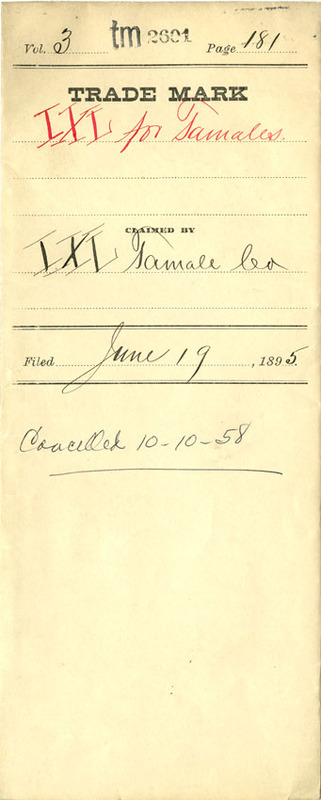 Vol. 3 tm 2601 Page 181
TRADE MARK
IXL for Tamales.
CLAIMED BY
IXL Tamale Co
Filed June 19, 1895.
Cancelled 10-10-58